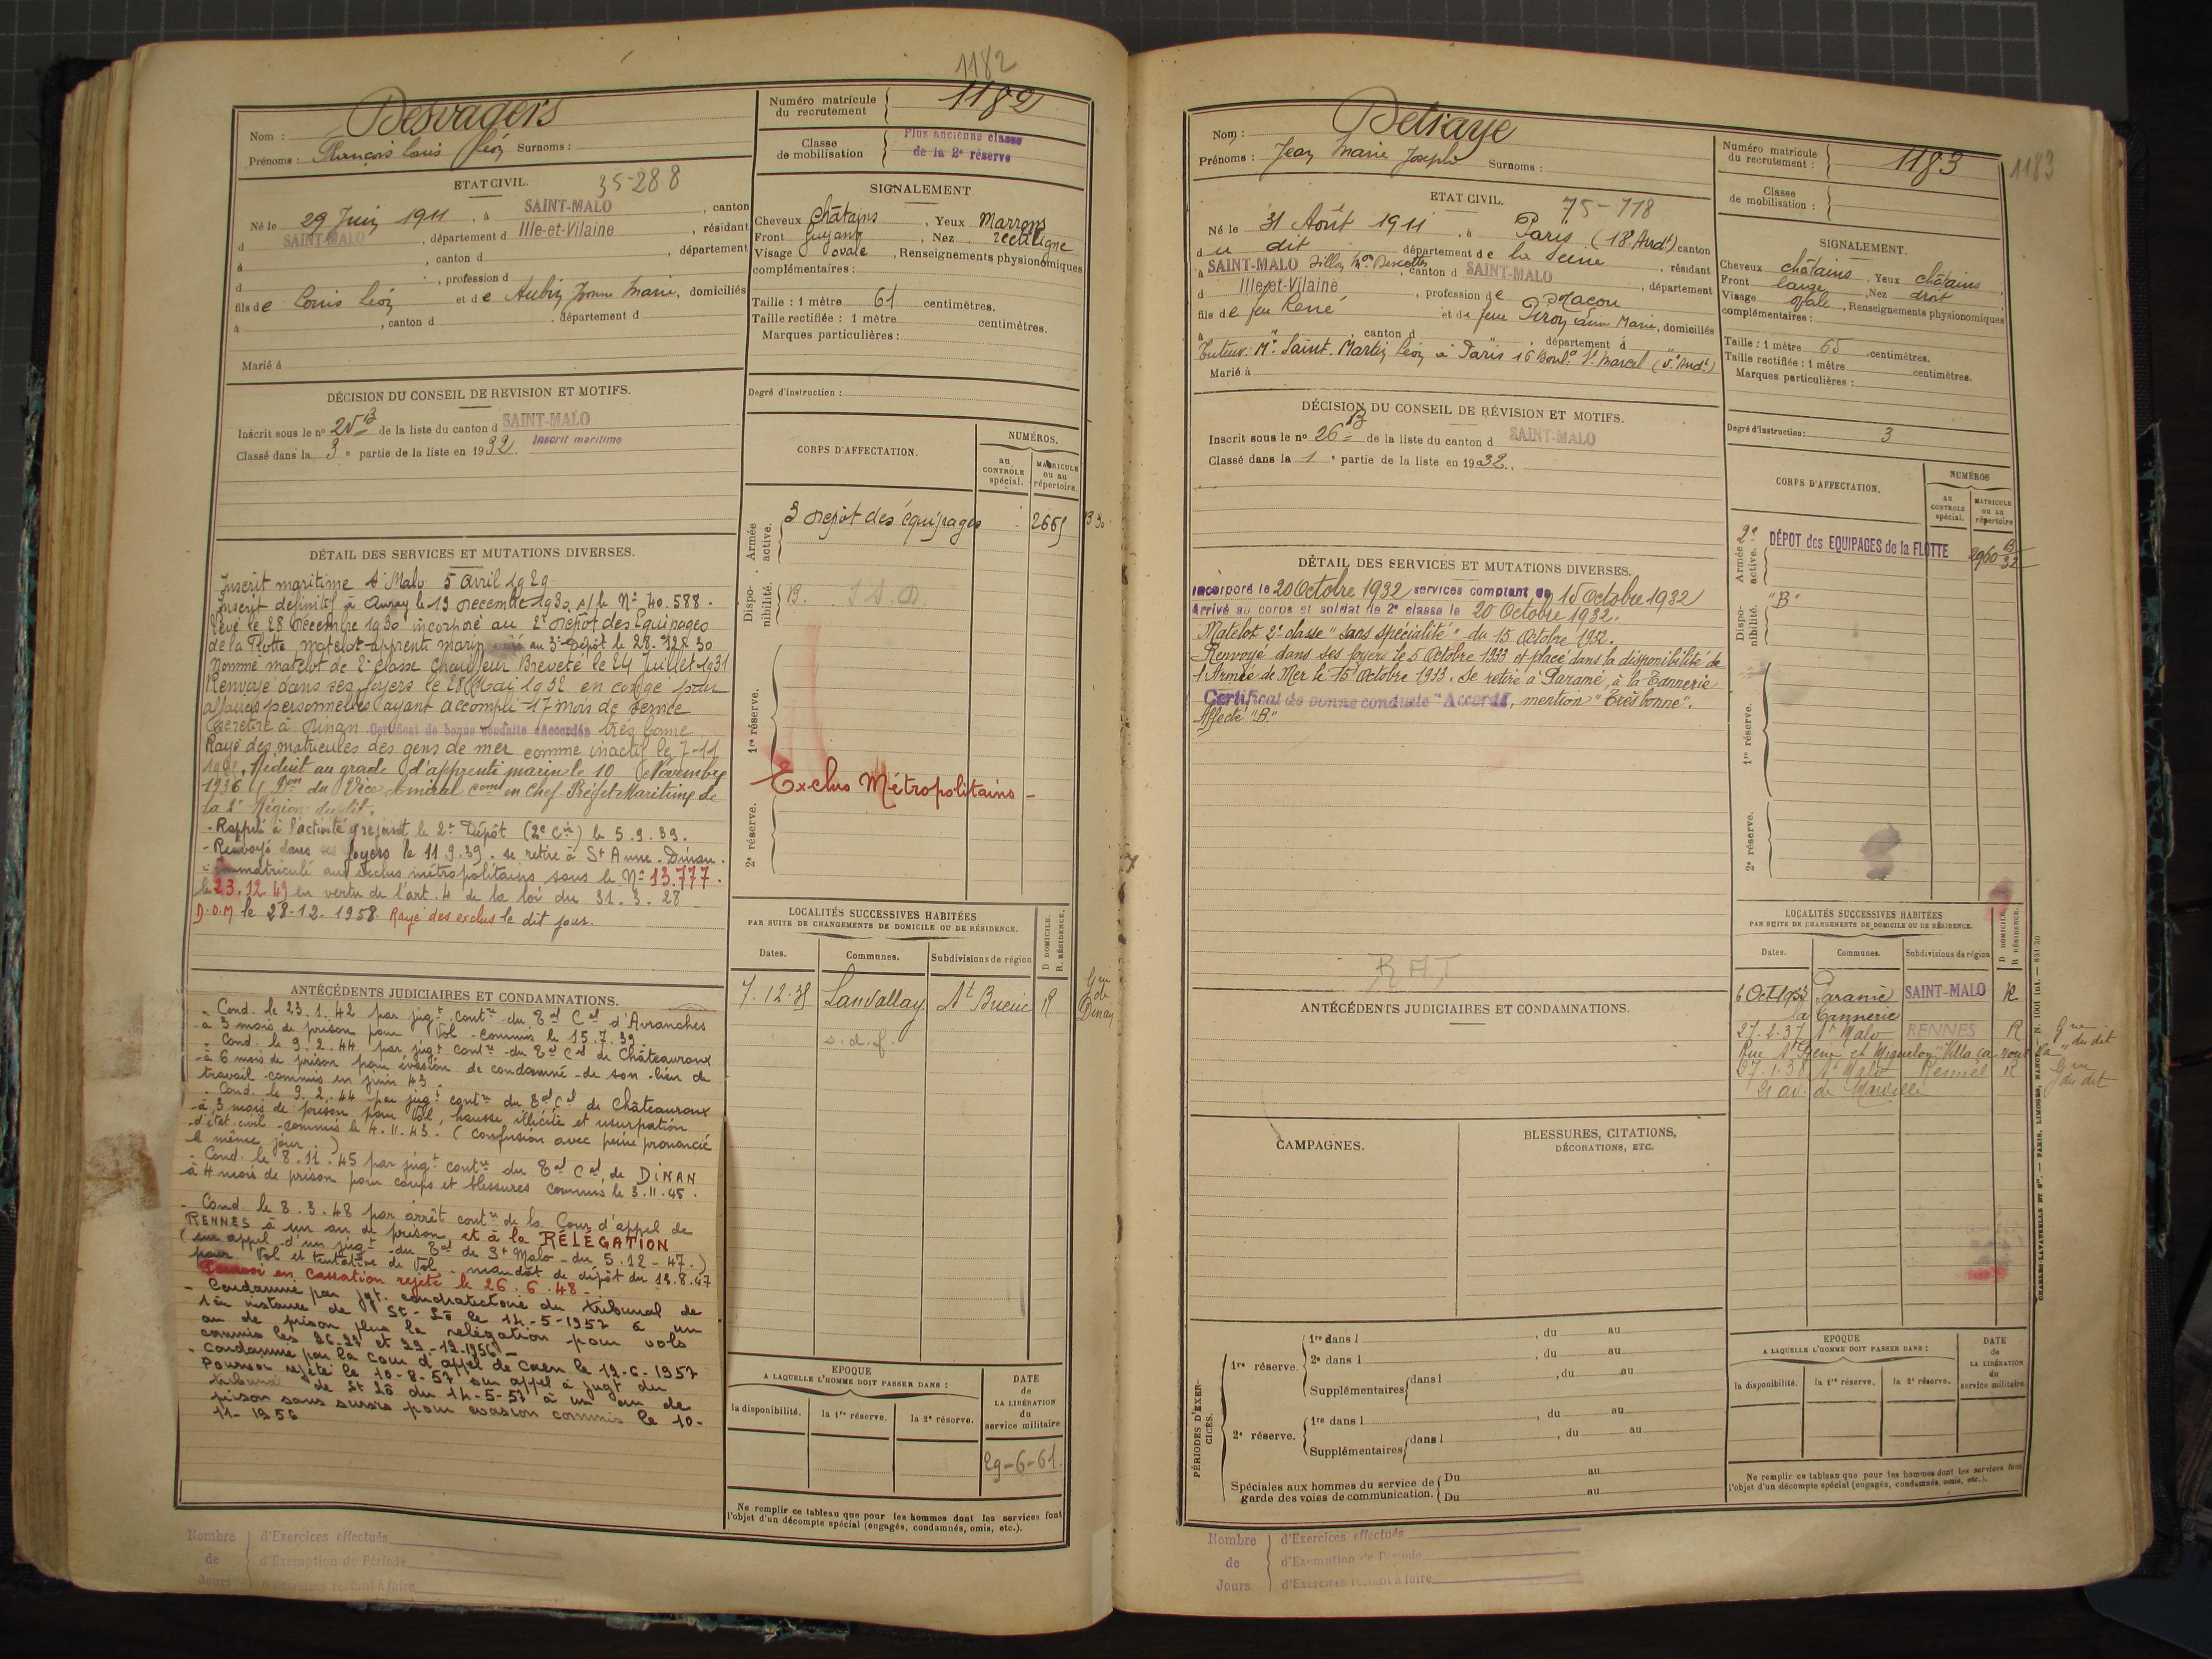 1182
Nom : Desvadors
Prénoms : François Louis Léon Surnoms :
Numéro matricule du recrutement 1182
Classe de mobilisation Plus ancienne classe de la 2e réserve
ETAT CIVIL. 35-288
Né le 29 Juin 1911, à SAINT-MALO, canton
d SAINT-MALO, département d Ille-et-Vilaine, résidant
à , canton d , département
d , profession d
fils de Louis Léon et de Aubin Yvonne Marie, domiciliés
à , canton d , département d
Marié à
SIGNALEMENT
Cheveux châtains, Yeux Marrons
Front fuyant, Nez rectiligne
Visage ovale, Renseignements physionomiques
complémentaires :
Taille : 1 mètre 61 centimètres.
Taille rectifiée : 1 mètre centimètres.
Marques particulières :
Degré d'instruction :
DÉCISION DU CONSEIL DE REVISION ET MOTIFS.
Inscrit sous le no 25 B de la liste du canton d SAINT-MALO
Classé dans la 3e partie de la liste en 1932. Inscrit maritime
CORPS D'AFFECTATION.
NUMÉROS.
au CONTRÔLE spécial.
MATRICULE ou au répertoire.
Armée active.
3 Dépôt des équipages 2665 B 30
Disponibilité.
B.
1re réserve.
2e réserve.
Exclus Métropolitains -
DÉTAIL DES SERVICES ET MUTATIONS DIVERSES.
Inscrit maritime St Malo 5 avril 1929.
Inscrit définitif à Auray le 19 Décembre 1930 s/ le No 40.588.
Levé le 28 Décembre 1930 incorporé au 2e Dépôt des Equipages
de la Flotte, matelot-apprenti marin au 3e Dépôt le 28.12.30
Nommé matelot de 2e classe chauffeur Breveté le 24 Juillet 1931
Renvoyé dans ses foyers le 28 Mai 1932 en congé pour
affaires personnelles ayant accompli 17 mois de service
Se retire à Dinan Certificat de bonne conduite Accordé très bonne
Rayé des matricules des gens de mer comme inactif le 7-11
Réduit au grade d'apprenti marin le 10 Novembre
1936 (Don du Vice Amiral Comt en Chef Préfet Maritime de
la 2e Région dudit.
- Rappelé à l'activité rejoint le 2e Dépôt (2e Cie) le 5.9.39.
- Renvoyé dans ses foyers le 11.9.39. se retire à St Anne - Dinan.
- Immatriculé aux exclus métropolitains sous le No 13.777.
le 23.12.49 en vertu de l'art. 4 de la loi du 31.3.28
D.O.M le 28-12-1958. Rayé des exclus le dit jour.
LOCALITÉS SUCCESSIVES HABITÉES
PAR SUITE DE CHANGEMENTS DE DOMICILE OU DE RÉSIDENCE.
Dates. Communes. Subdivisions de région
D DOMICILE. R RÉSIDENCE.
7.12.35 Lanvallay St Brieuc R Gie de Dinan
s.d.f.
ANTÉCÉDENTS JUDICIAIRES ET CONDAMNATIONS.
- Cond. le 23.1.42 par jugt contre du Tal Cel d'Avranches
à 3 mois de prison pour Vol commis le 15.7.39.
- Cond. le 9.2.44 par jugt contre du Tal Cel de Châteauroux
à 6 mois de prison pour évasion de condamné de son lieu de
travail commis en juin 43.
- Cond. le 9.2.44 par jugt contre du Tal Cel de Châteauroux
à 3 mois de prison pour Vol, hausse illicite et usurpation
d'état civil commis le 4.11.43. (confusion avec peine prononcée
le même jour.)
- Cond. le 8.11.45 par jugt contre du Tal Cel de DINAN
à 4 mois de prison pour coups et blessures commis le 3.11.45.
- Cond. le 8.3.48 par arrêt contre de la Cour d'appel de
RENNES à un an de prison, et à la RELÉGATION
(sur appel d'un jugt du Tal de St Malo du 5.12-47.)
pour Vol et tentative de Vol. mandat de dépôt du 12.8.47
Pourvoi en cassation rejeté le 26.6.48.
- Condamné par jgt. contradictoire du tribunal de
1ère instance de St-Lô le 14-5-1957 à un
an de prison plus la relégation pour vols
commis les 26-27 et 29-12-1956 -
- Condamné par la cour d'appel de Caen le 12-6-1957
Pourvoi rejeté le 10-8-57 sur appel à jugt du
tribunal de St Lô du 14-5-57 à un an de
prison sans sursis pour évasion commis le 10-
11-1956
EPOQUE
A LAQUELLE L'HOMME DOIT PASSER DANS :
la disponibilité. la 1re réserve. la 2e réserve.
DATE de LA LIBÉRATION du service militaire
29-6-61.
Ne remplir ce tableau que pour les hommes dont les services font
l'objet d'un décompte spécial (engagés, condamnés, omis, etc.).
Nombre de Jours
d'Exercices effectués
d'Exemption de Période
d'Exercices restant à faire
Nom : Delsaye
Prénoms : Jean Marie Joseph Surnoms :
Numéro matricule du recrutement : 1183
1183
Classe de mobilisation :
ETAT CIVIL. 75-118
Né le 31 Août 1911, à Paris (13e Arrdt) canton
du dit département de la Seine, résidant
à SAINT-MALO Sillon, canton d SAINT-MALO, département
d Ille-et-Vilaine, profession de Maçon
fils de feu René et de feue Piron Marie, domiciliés
à " , canton d " , département d "
Tuteur: Mr Saint-Martin Léon à Paris 16 Boul. St Marcel (5e Arrdt)
Marié à
SIGNALEMENT.
Cheveux châtains, Yeux châtains
Front large, Nez droit
Visage ovale, Renseignements physionomiques
complémentaires :
Taille : 1 mètre 65 centimètres.
Taille rectifiée : 1 mètre centimètres.
Marques particulières :
Degré d'instruction : 3
DÉCISION DU CONSEIL DE RÉVISION ET MOTIFS.
Inscrit sous le no 26 B de la liste du canton d SAINT-MALO
Classé dans la 1e partie de la liste en 1932.
CORPS D'AFFECTATION.
NUMÉROS
au CONTROLE spécial.
MATRICULE ou au répertoire
Armée active.
2e DÉPOT des EQUIPAGES de la FLOTTE 2960 B 32
Disponibilité.
"B"
1re réserve.
2e réserve.
DÉTAIL DES SERVICES ET MUTATIONS DIVERSES.
Incorporé le 20 Octobre 1932 services comptant du 15 Octobre 1932
Arrivé au corps et soldat de 2e classe le 20 Octobre 1932.
Matelot 2e classe "sans spécialité" du 15 Octobre 1932.
Renvoyé dans ses foyers le 5 Octobre 1933 et placé dans la disponibilité de
l'Armée de Mer le 15 Octobre 1933. Se retire à Paramé, à la Tannerie
Certificat de bonne conduite "Accordé", mention "Très bonne".
Affecté "B."
RAT
LOCALITÉS SUCCESSIVES HABITÉES
PAR SUITE DE CHANGEMENTS DE DOMICILE OU DE RÉSIDENCE.
Dates. Communes. Subdivisions de région
D DOMICILE. R RÉSIDENCE.
6 Oct 1933 Paramé SAINT-MALO R
la Tannerie
27.2.37 St Malo RENNES R Gie du dit
Rue St Pierre et Miquelon Villa
27.1.38 St Malo Rennes R Gie du dit
21 av. de Marville
ANTÉCÉDENTS JUDICIAIRES ET CONDAMNATIONS.
CAMPAGNES.
BLESSURES, CITATIONS,
DÉCORATIONS, ETC.
PÉRIODES D'EXERCICES.
1re réserve.
1re dans l , du au
2e dans l , du au
Supplémentaires dans l , du au
2e réserve.
1re dans l , du au
Supplémentaires dans l , du au
Spéciales aux hommes du service de garde des voies de communication.
Du au
Du au
EPOQUE
A LAQUELLE L'HOMME DOIT PASSER DANS :
la disponibilité. la 1re réserve. la 2e réserve.
DATE de LA LIBÉRATION du service militaire
Ne remplir ce tableau que pour les hommes dont les services font
l'objet d'un décompte spécial (engagés, condamnés, omis, etc.).
CHARLES-LAVAUZELLE ET Cie. — PARIS, LIMOGES, NANCY. — N. 1001 Int. — 831-30
Nombre de Jours
d'Exercices effectués
d'Exemption de Période
d'Exercices restant à faire